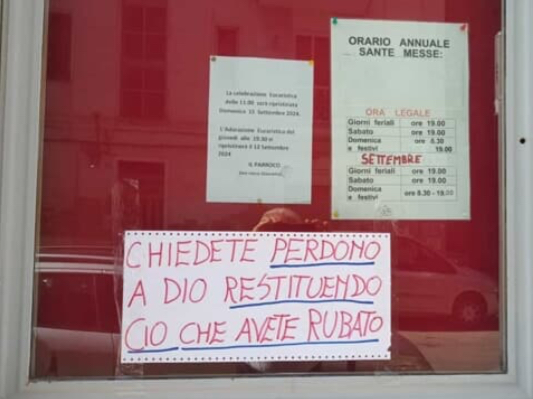 La celebrazione Eucaristica
delle 11.00 sarà ripristinata
Domenica 15 Settembre 2024.
L'Adorazione Eucaristica del
giovedì alle 19.30 si
ripristinerà il 12 Settembre
2024
IL PARROCO
ORARIO ANNUALE
SANTE MESSE:
ORA LEGALE
Giorni feriali ore 19.00
Sabato ore 19.00
Domenica ore 8.30
e festivi 19.00
SETTEMBRE
Giorni feriali ore 19.00
Sabato ore 19.00
Domenica
e festivi ore 8.30 - 19.00
CHIEDETE PERDONO
A DIO RESTITUENDO
CIO CHE AVETE RUBATO